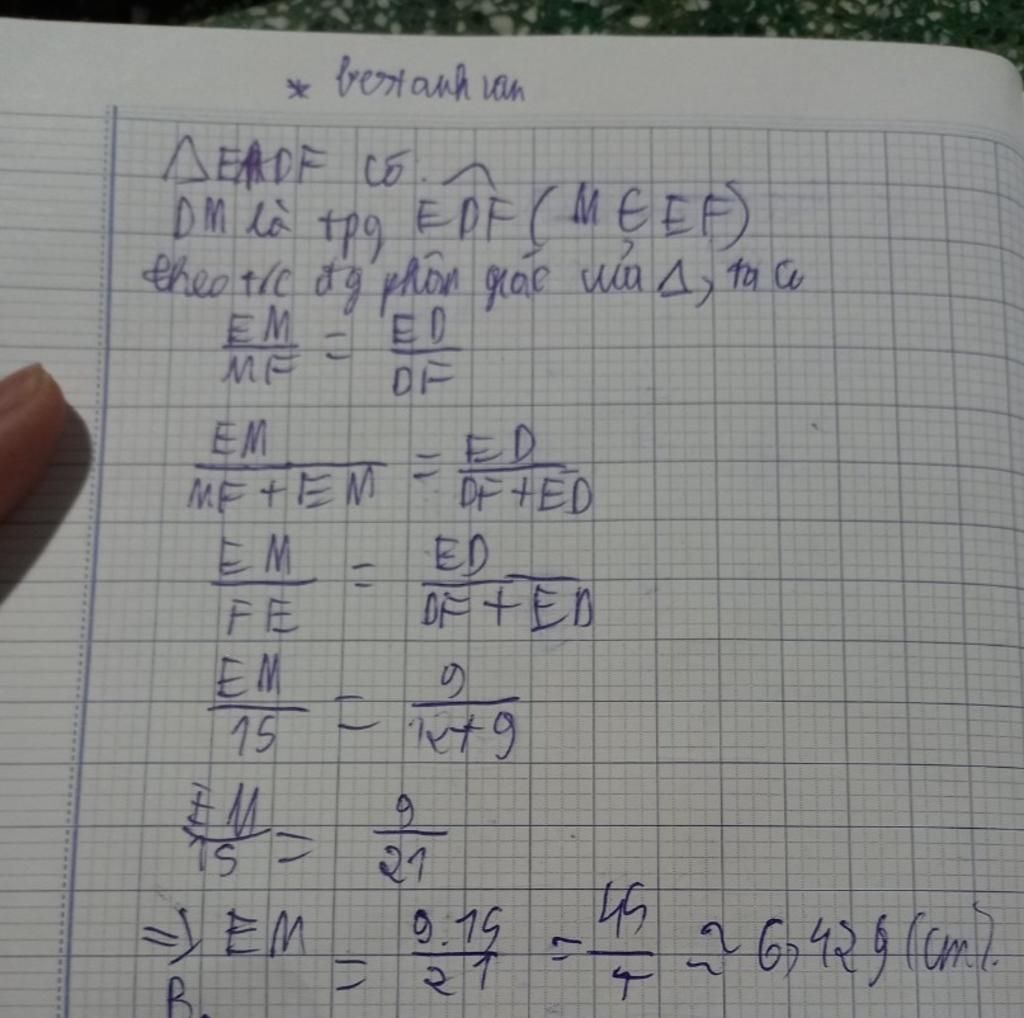 * bexanhvan
ΔEDF có.
DM là tpg EDF (M ∈ EF)
theo t/c đg phân giác của Δ, ta có
EM/MF = ED/DF
EM/MF + EM = ED/DF + ED
EM/FE = ED/DF + ED
EM/15 = 9/12+9
EM/15 = 9/21
=> EM = 9.15/21 = 45/7 ≈ 6,429 (cm).
B.